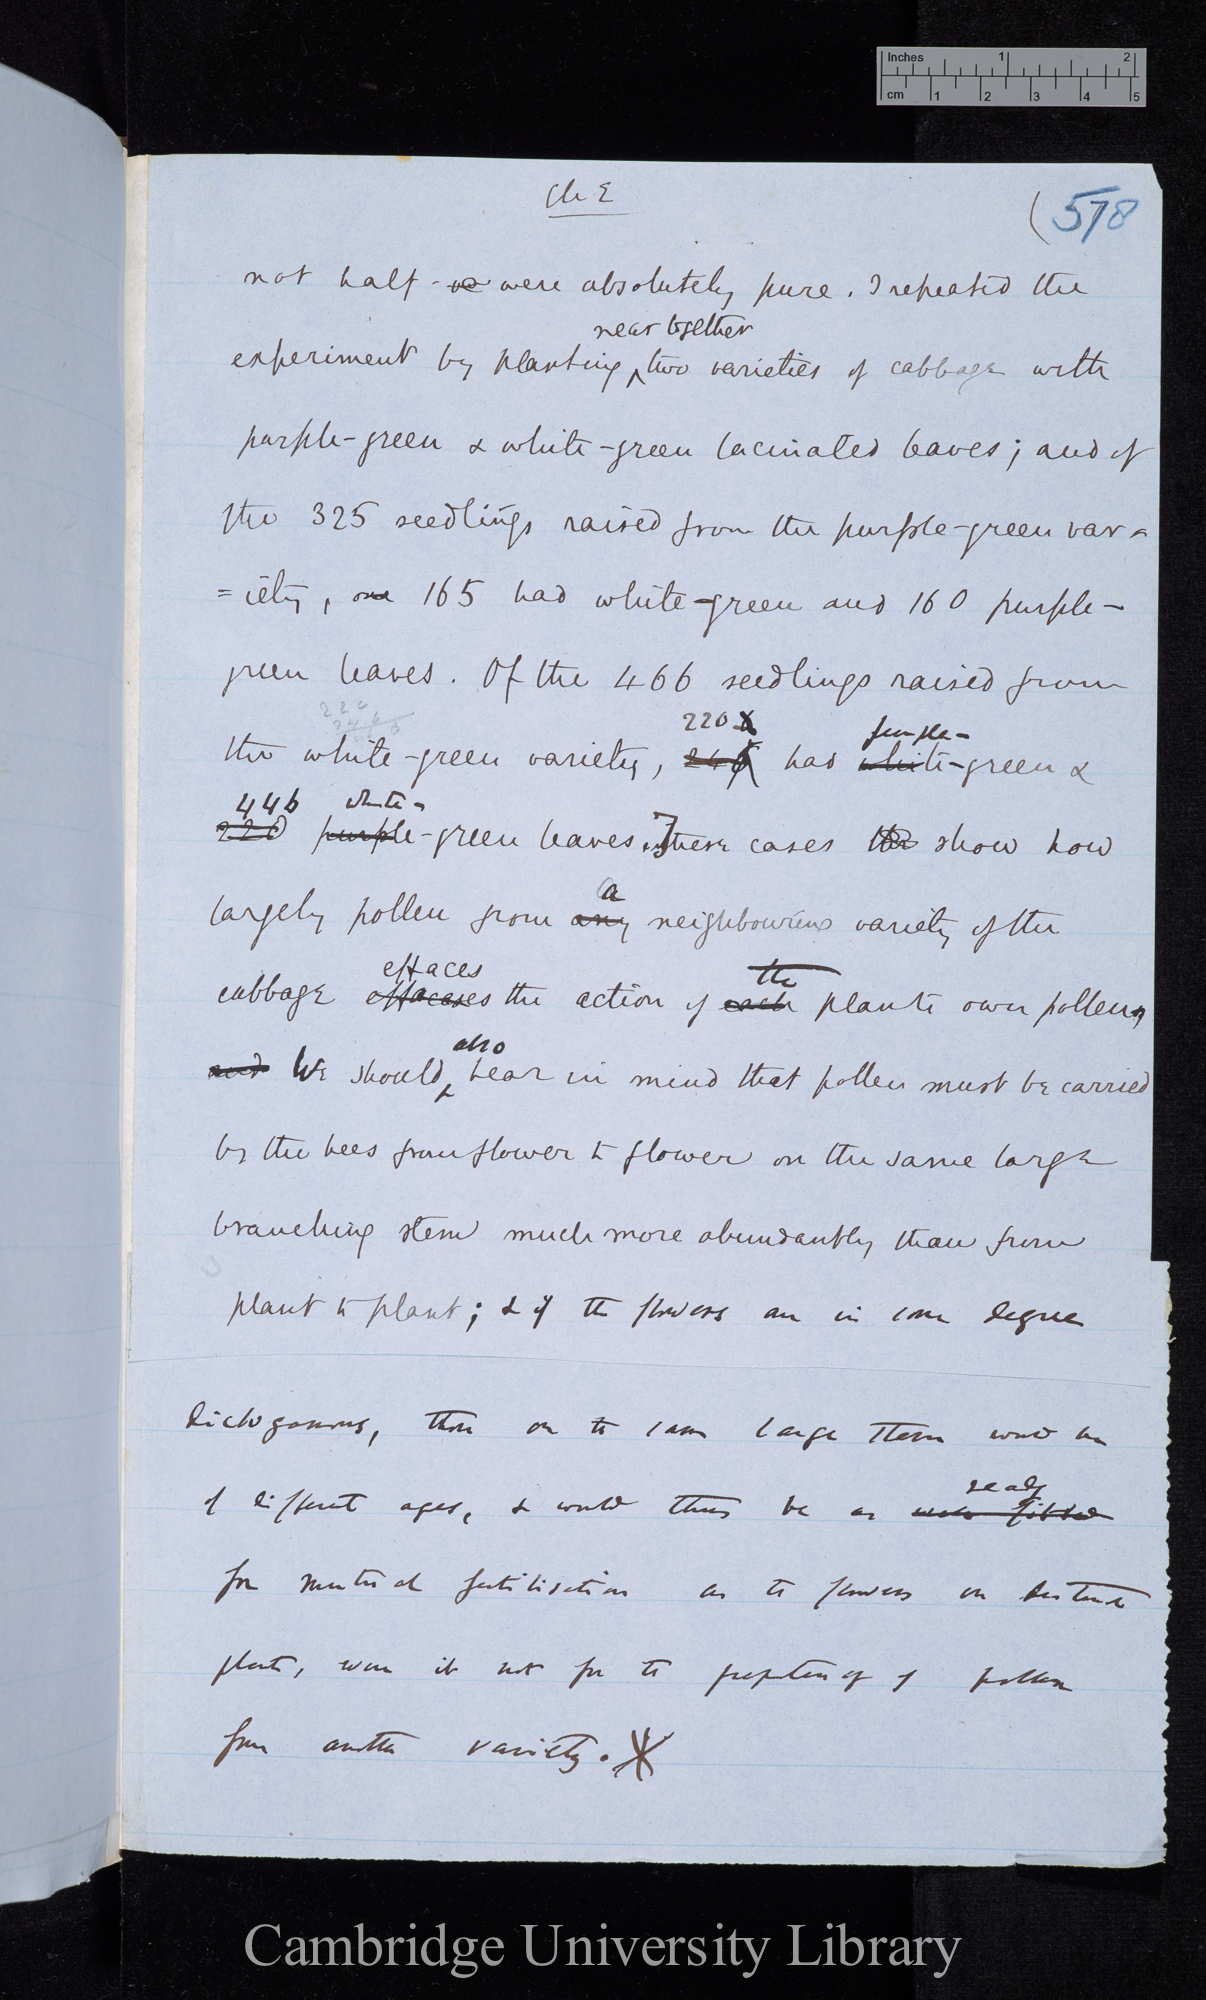 Inches 1 2
cm 1 2 3 4 5
Ch 2
(578
not half - we were absolutely pure. I repeated the
near together
experiment by planting, two varieties of cabbage with
purple-green & white-green lacinated leaves; and of
the 325 seedlings raised from the purple-green var-
=iety, one 165 had white-green and 160 purple-
green leaves. Of the 466 seedlings raised from
226
220 purple-
the white-green variety, 246 had white-green &
446 white-
220 purple-green leaves.] These cases show how
a
largely pollen from any neighbouring variety of the
effaces the
cabbage effacases the action of each plants own pollen,
also
and We should, bear in mind that pollen must be carried
by the bees from flower to flower on the same large
branching stem much more abundantly than from
plant to plant; & if the flowers are in some degree
dichogamous, those on the same large stem would be
ready
of different ages, & would thus be as well fitted
for mutual fertilisation as the flowers on distinct
plants, were it not for the prepotency of pollen
from another variety.
Cambridge University Library